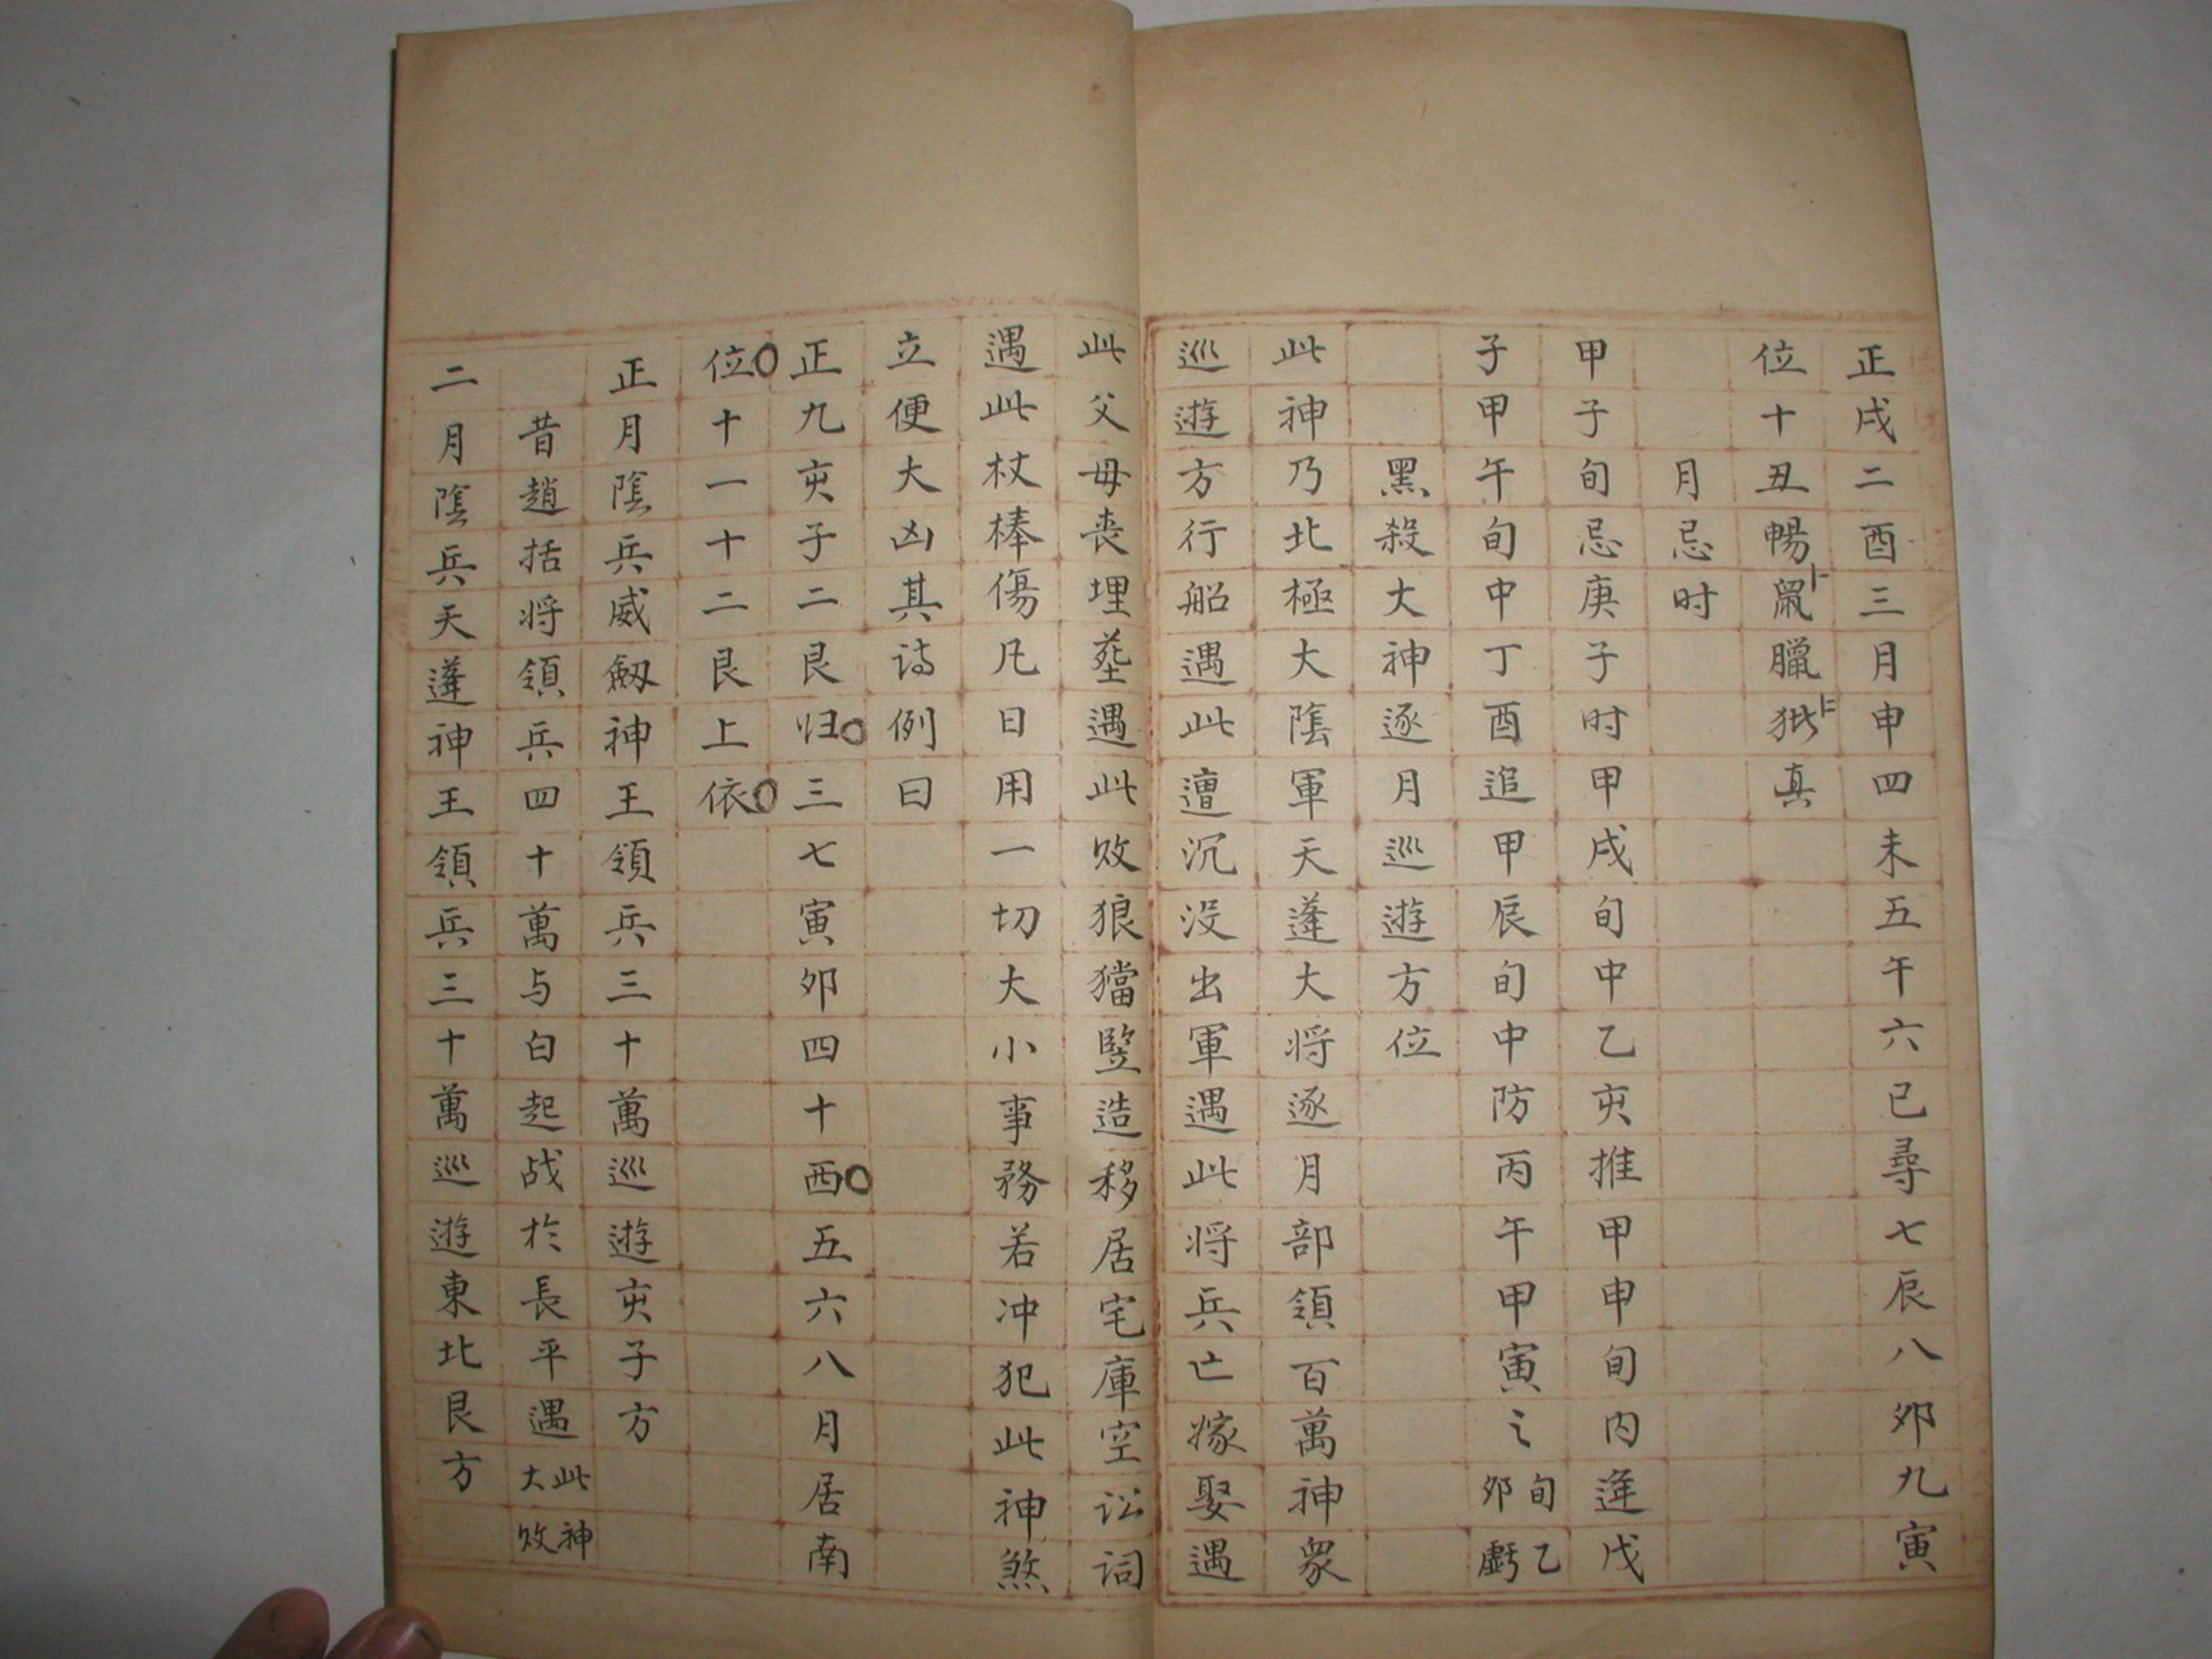 正戌二酉三月申四未五午六巳尋七辰八卯九寅
位十丑暢鼠臘狘真
月忌时
甲子旬忌庚子时甲戌旬中乙亥推甲申旬内逢戊
子甲午旬中丁酉追甲辰旬中防丙午甲寅之旬乙卯虧
黑殺大神逐月巡遊方位
此神乃北極大陰軍天蓬大将逐月部領百萬神衆
巡遊方行船遇此遭沉没出軍遇此将兵亡嫁娶遇
此父母丧埋塟遇此敗狼猖竪造移居宅庫空讼词
遇此杖棒傷凡日用一切大小事務若冲犯此神煞
立便大凶其诗例曰
正九亥子二艮归三七寅卯四十西五六八月居南
位十一十二艮上依
正月陰兵威劔神王領兵三十萬巡遊亥子方
昔趙括将領兵四十萬与白起战於長平遇此神大敗
二月陰兵天蓬神王領兵三十萬巡遊東北艮方